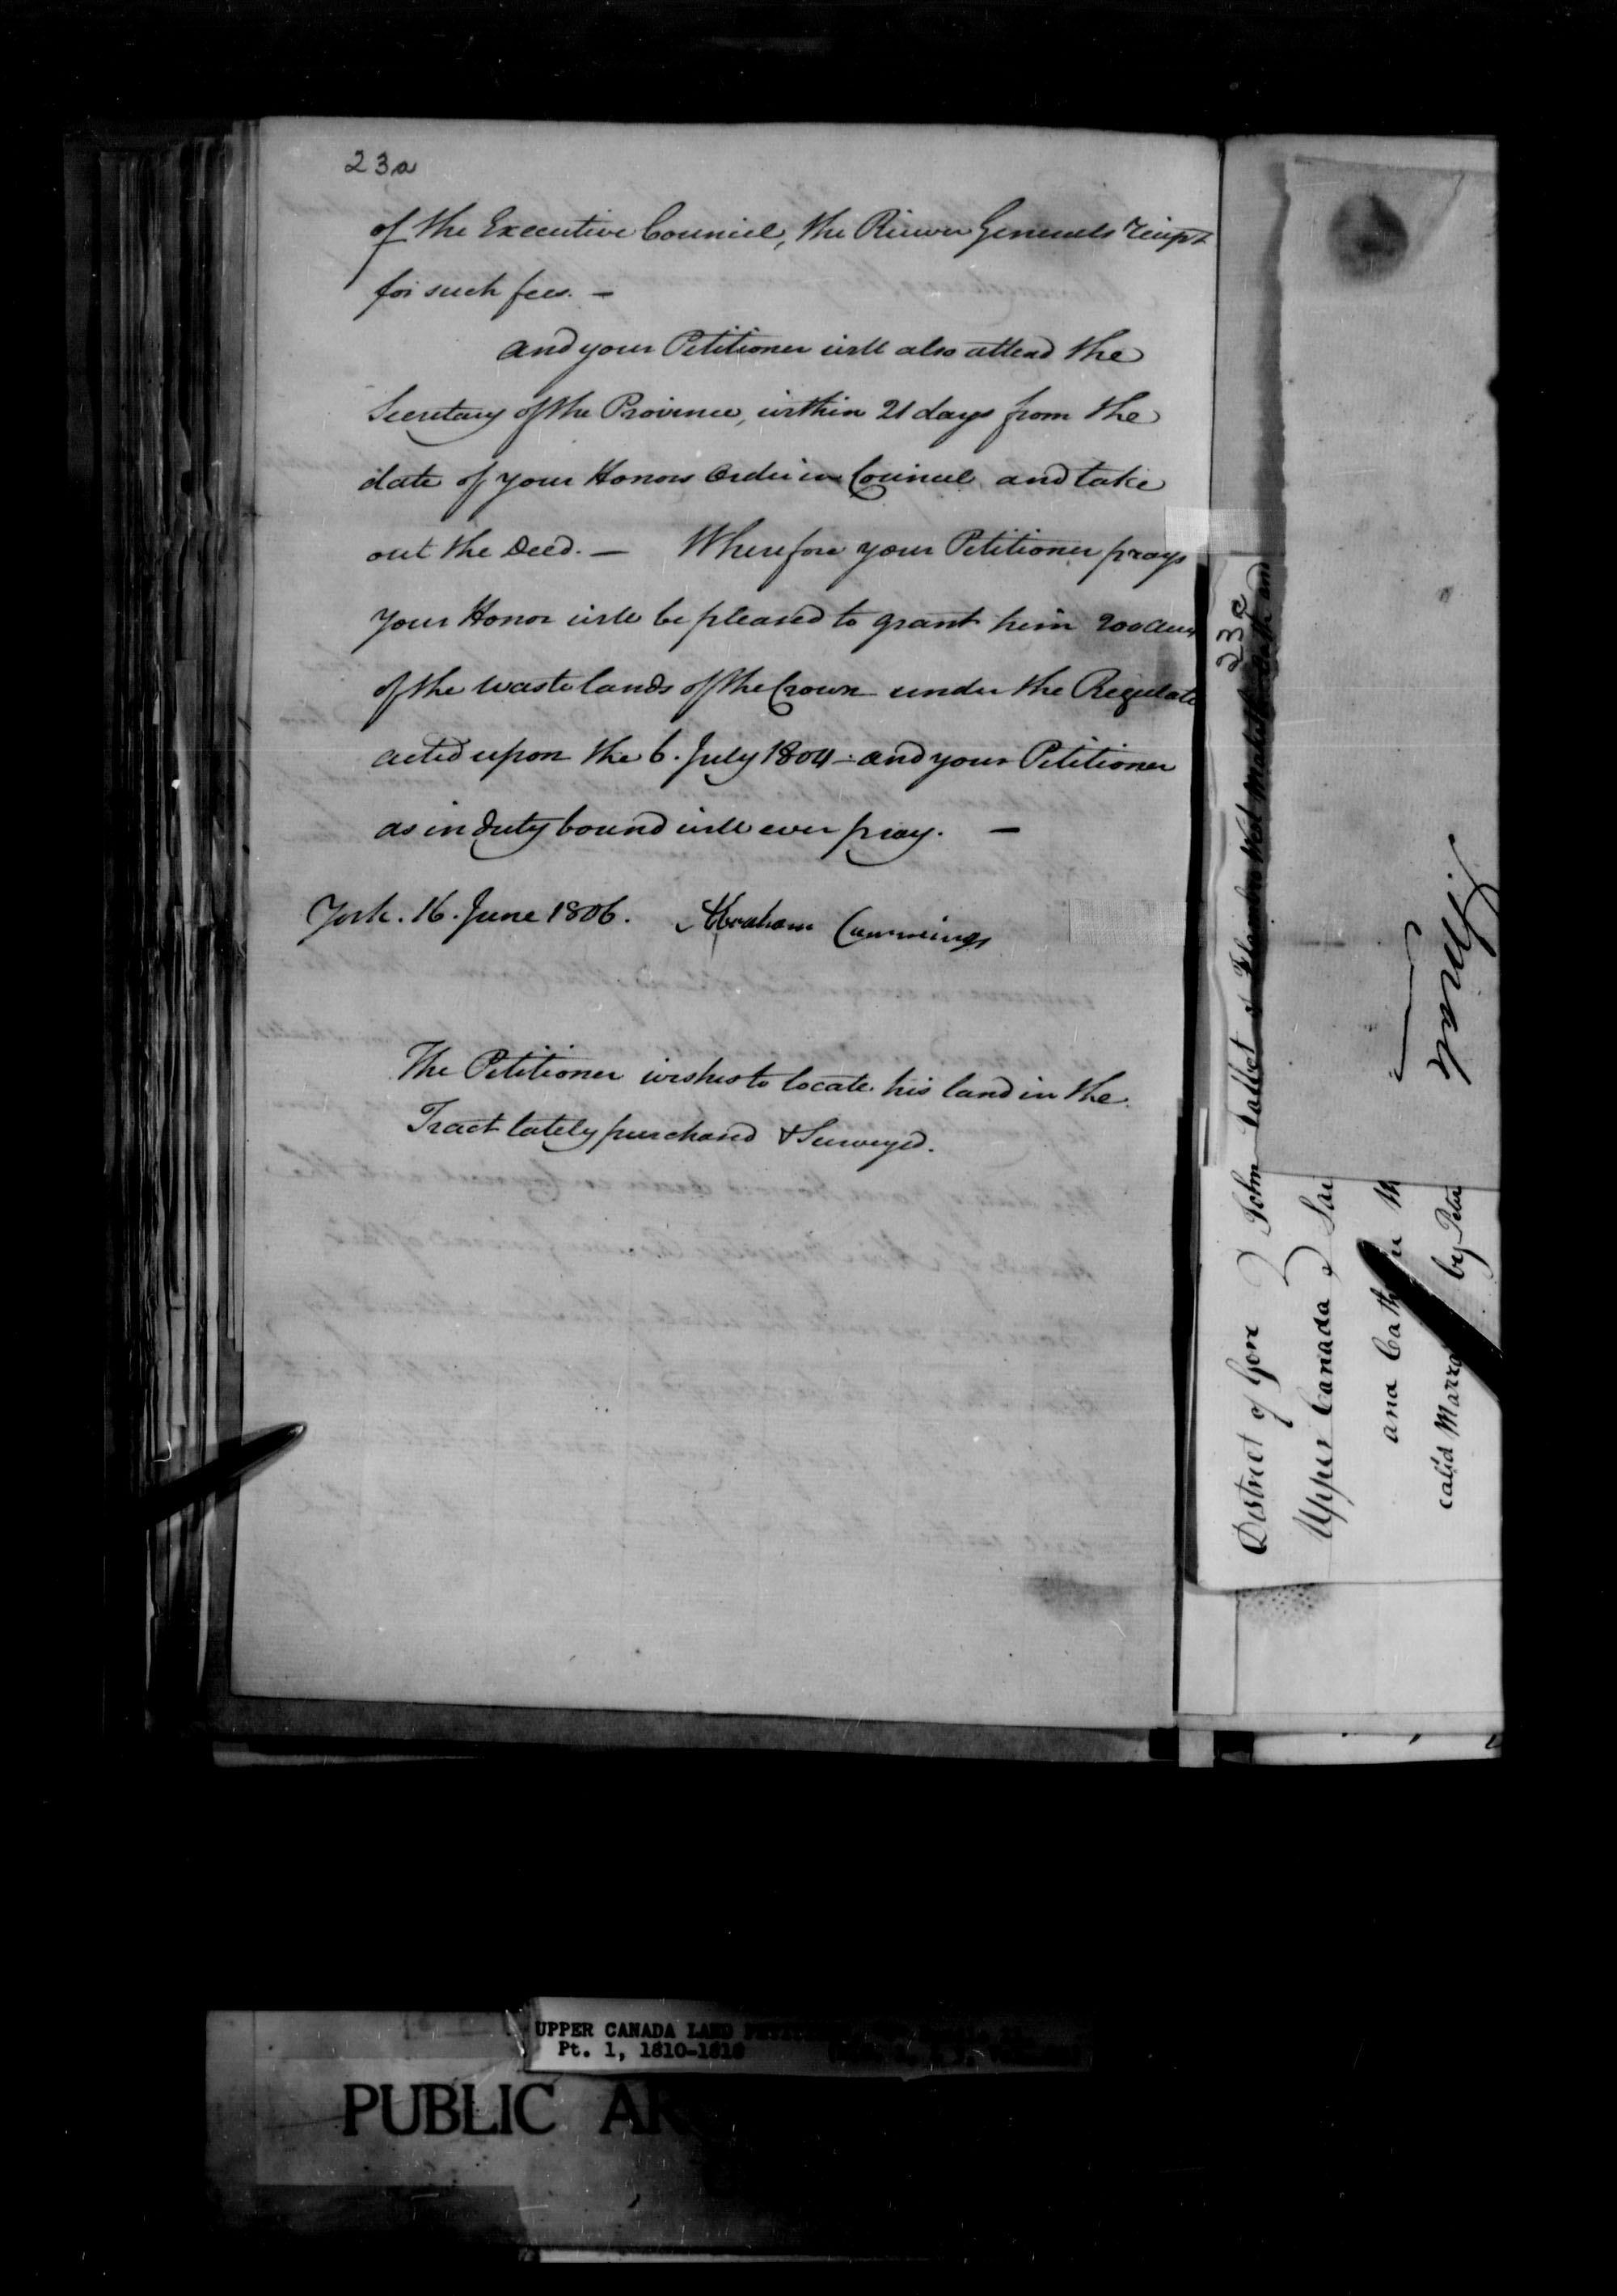 23a
of the Executive Council, the Receiver Generals receipt
for such fees. —
and your Petitioner will also attend the
Secretary of the Province, within 21 days from the
date of your Honors Order in Council and take
out the Deed. — Wherefore your Petitioner prays
your Honor will be pleased to grant him 200 acres
of the waste lands of the Crown under the Regulat
acted upon the 6. July 1804 - and your Petitioner
as in duty bound will ever pray. —
York. 16. June 1806. Abraham Cummings
The Petitioner wishes to locate his land in the
Tract lately purchased & Surveyed.
23c
District of Gore John Talbot of Flamboro West
Upper Canada
by Peter
UPPER CANADA LAND
Pt. 1, 1810-1818
PUBLIC AR